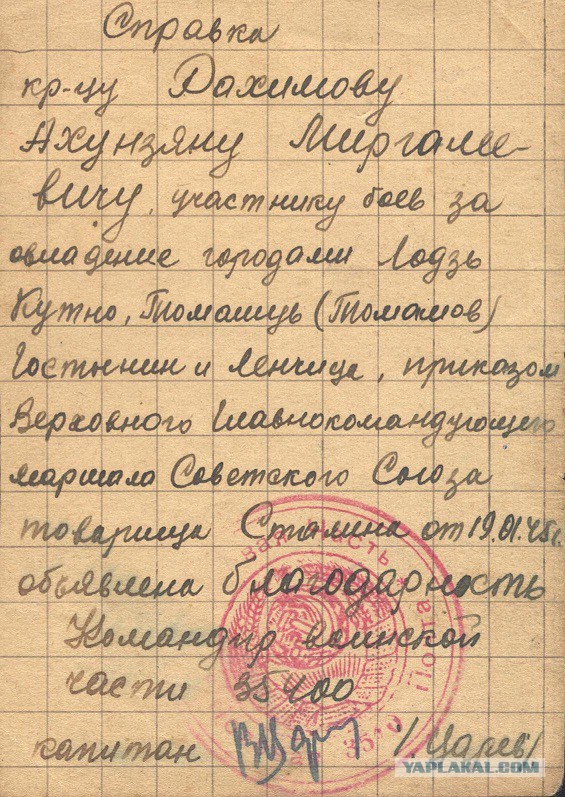 Справка
кр-цу Рахимову
Ахунзяну Миргале-
вичу, участнику боев за
овладение городами Лодзь
Кутно, Томашув (Томашов)
Гостынин и Ленчица, приказом
Верховного Главнокомандующего
маршала Советского Союза
товарища Сталина от 19.01.45г.
объявлена благодарность
Командир воинской
части 35400
капитан /Царев/
YAPLAKAL.COM